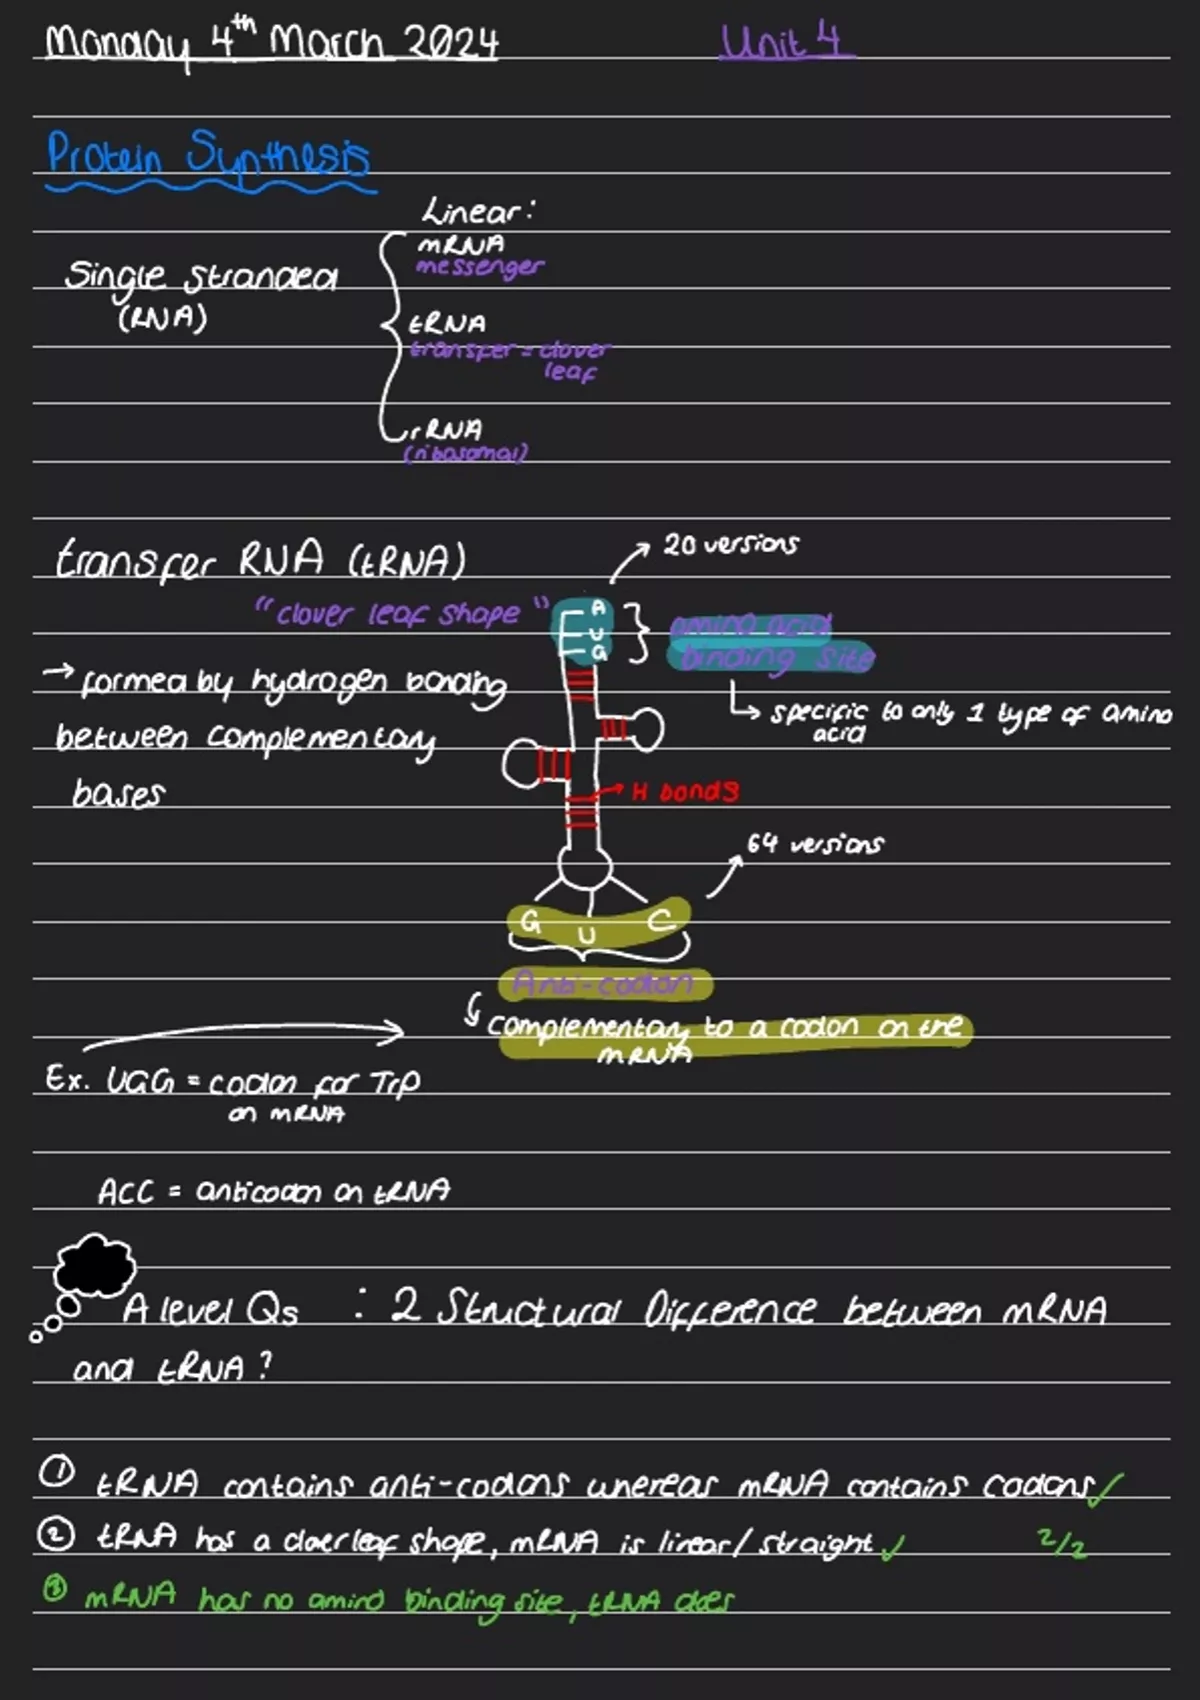 Monday 4th March 2024
Unit 4
Protein Synthesis
Linear:
mRNA
messenger
Single stranded
(RNA)
tRNA
transfer = clover
leaf
rRNA
(ribosomal)
transfer RNA (tRNA)
20 versions
"clover leaf shape"
A
U
G
amino acid
binding site
→ formed by hydrogen bonding
between complementary
bases
specific to only 1 type of amino
acid
H bonds
64 versions
G U C
Anti-codon
complementary to a codon on the
mRNA
Ex. UGG = codon for Trp
on mRNA
ACC = anticodon on tRNA
A level Qs : 2 Structural Difference between mRNA
and tRNA?
① tRNA contains anti-codons whereas mRNA contains codons ✓
② tRNA has a cloerleaf shape, mRNA is linear/straight ✓ 2/2
③ mRNA has no amino binding site, tRNA does